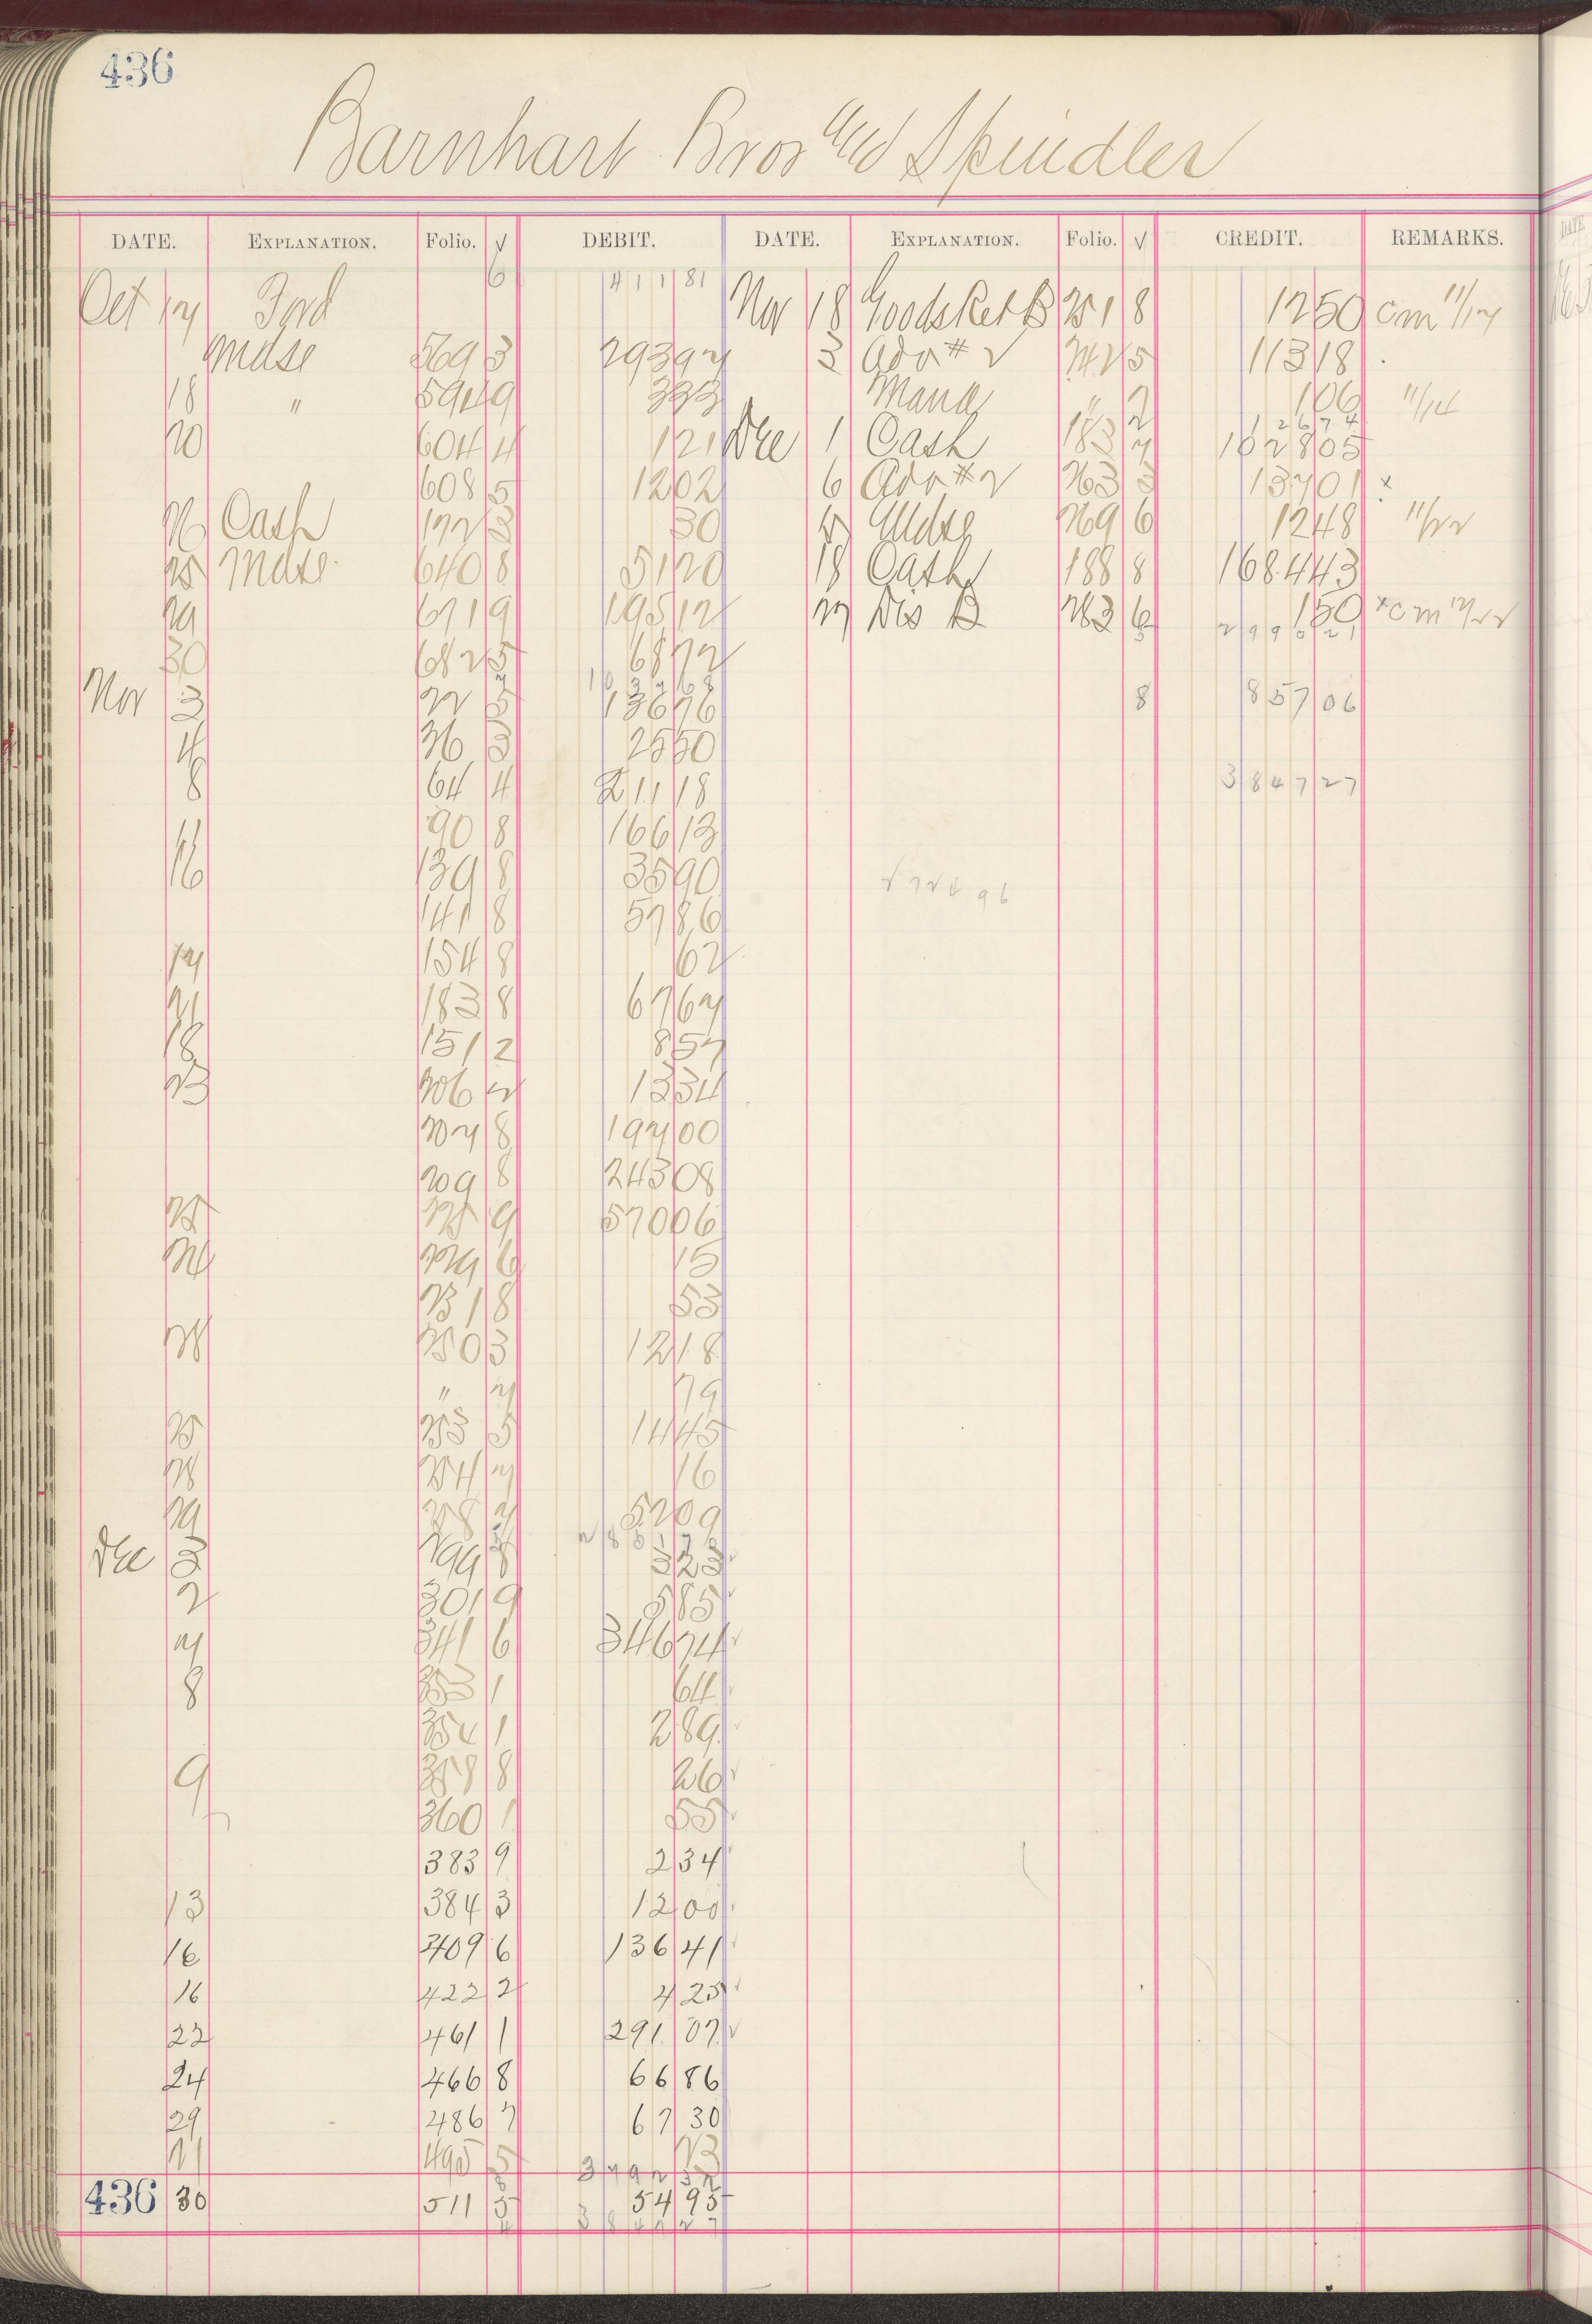 436
Barnhart Bros and Spindler
DATE. EXPLANATION. Folio. √ DEBIT. DATE. EXPLANATION. Folio. √ CREDIT. REMARKS.
6 411 81
Oct 17 Ford Nov 18 Goods Ret B 251 8 12 50 cm 11/17
Mdse 569 3 293 97 3 Ado # 2 242 5 113 18
18 " 594 9 3 33 Mana " 2 1 06 11/14
1 26 74
20 604 4 1 21 Dec 1 Cash 183 7 1028 05
608 5 12 02 6 Ado # 2 263 3 137 01 x
26 Cash 172 3 30 Mdse 269 6 12 48 11/22
25 Mdse 640 8 51 20 18 Cash 188 8 1684 43
29 671 9 195 12 27 Dis B 283 6 1 50 x cm 12/22
2990 21
30 682 5 68 72
10 37 68
Nov 3 22 5 136 76 8 857 06
4 36 3 25 50
8 64 4 211 18 3847 27
90 8 166 13
16 139 8 35 90
141 8 57 86
17 154 8 62
21 183 8 67 67
18 151 2 8 57
23 206 2 13 34
207 8 197 00
209 8 243 08
25 9 570 06
229 6 15
231 8 53
250 3 12 18
" 7 79
25 253 5 14 45
28 254 7 16
29 258 7 52 09
Dec 3 299 8 3 23
2 301 9 5 85
7 341 6 346 74
8 353 1 64
354 1 2 89
9 358 8 26
360 1 55
383 9 2 34
13 384 3 12 00
16 409 6 136 41
16 422 2 4 25
22 461 1 291 07
24 466 8 66 86
29 486 7 67 30
495 5 23
3792 32
436 30 511 5 54 95
3847 27